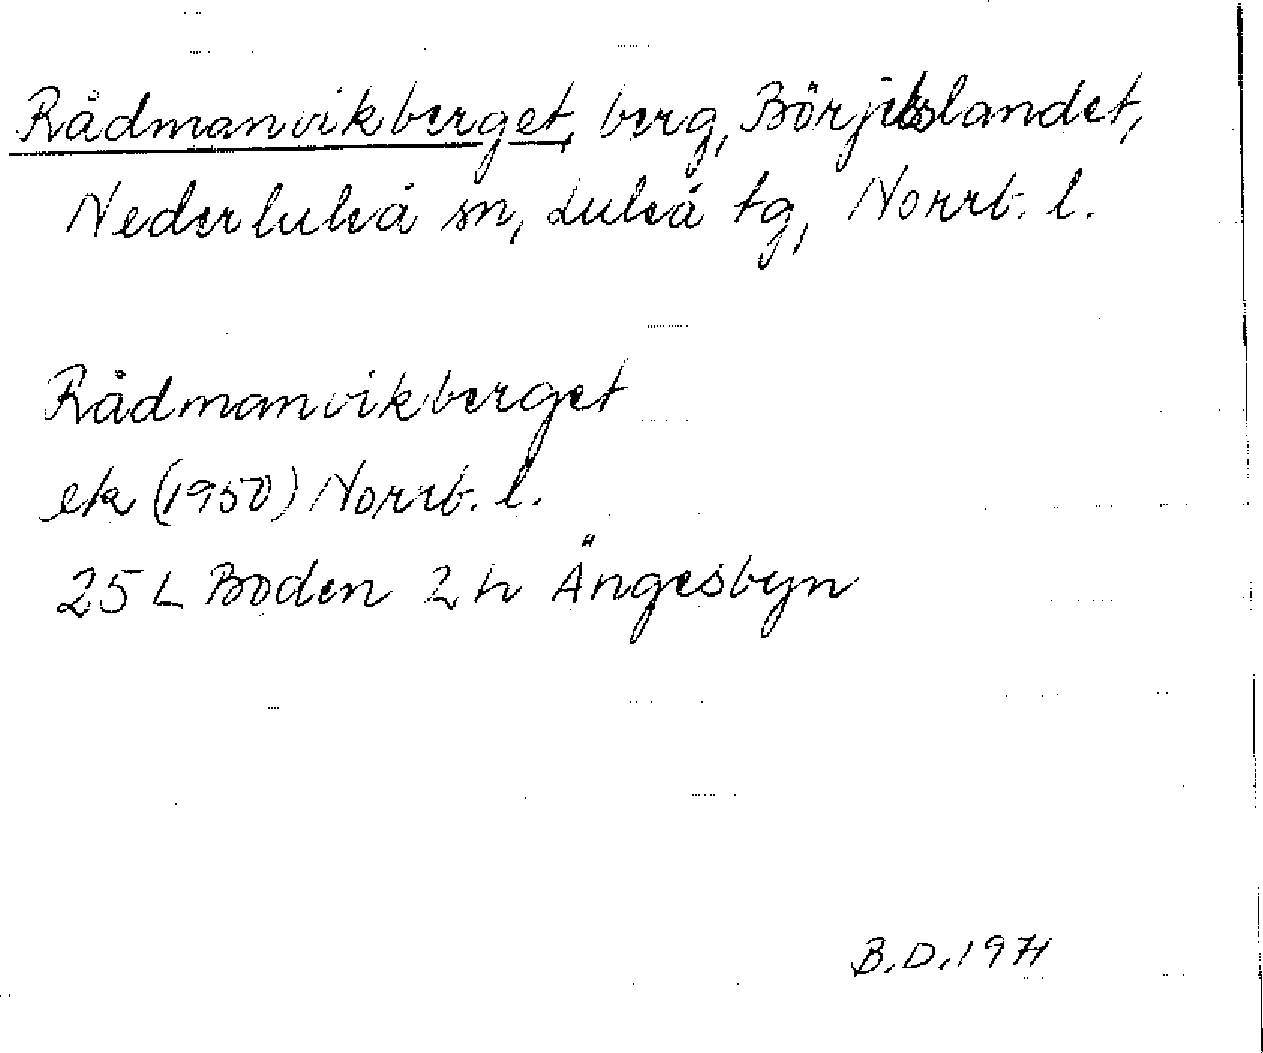 Rådmanvikberget, berg, Börjelslandet,
Nederluleå sn, Luleå tg, Norrb. l.
Rådmanvikberget
ek (1950) Norrb. l.
25 L Boden 2 h Ängesbyn
B.D. 1971